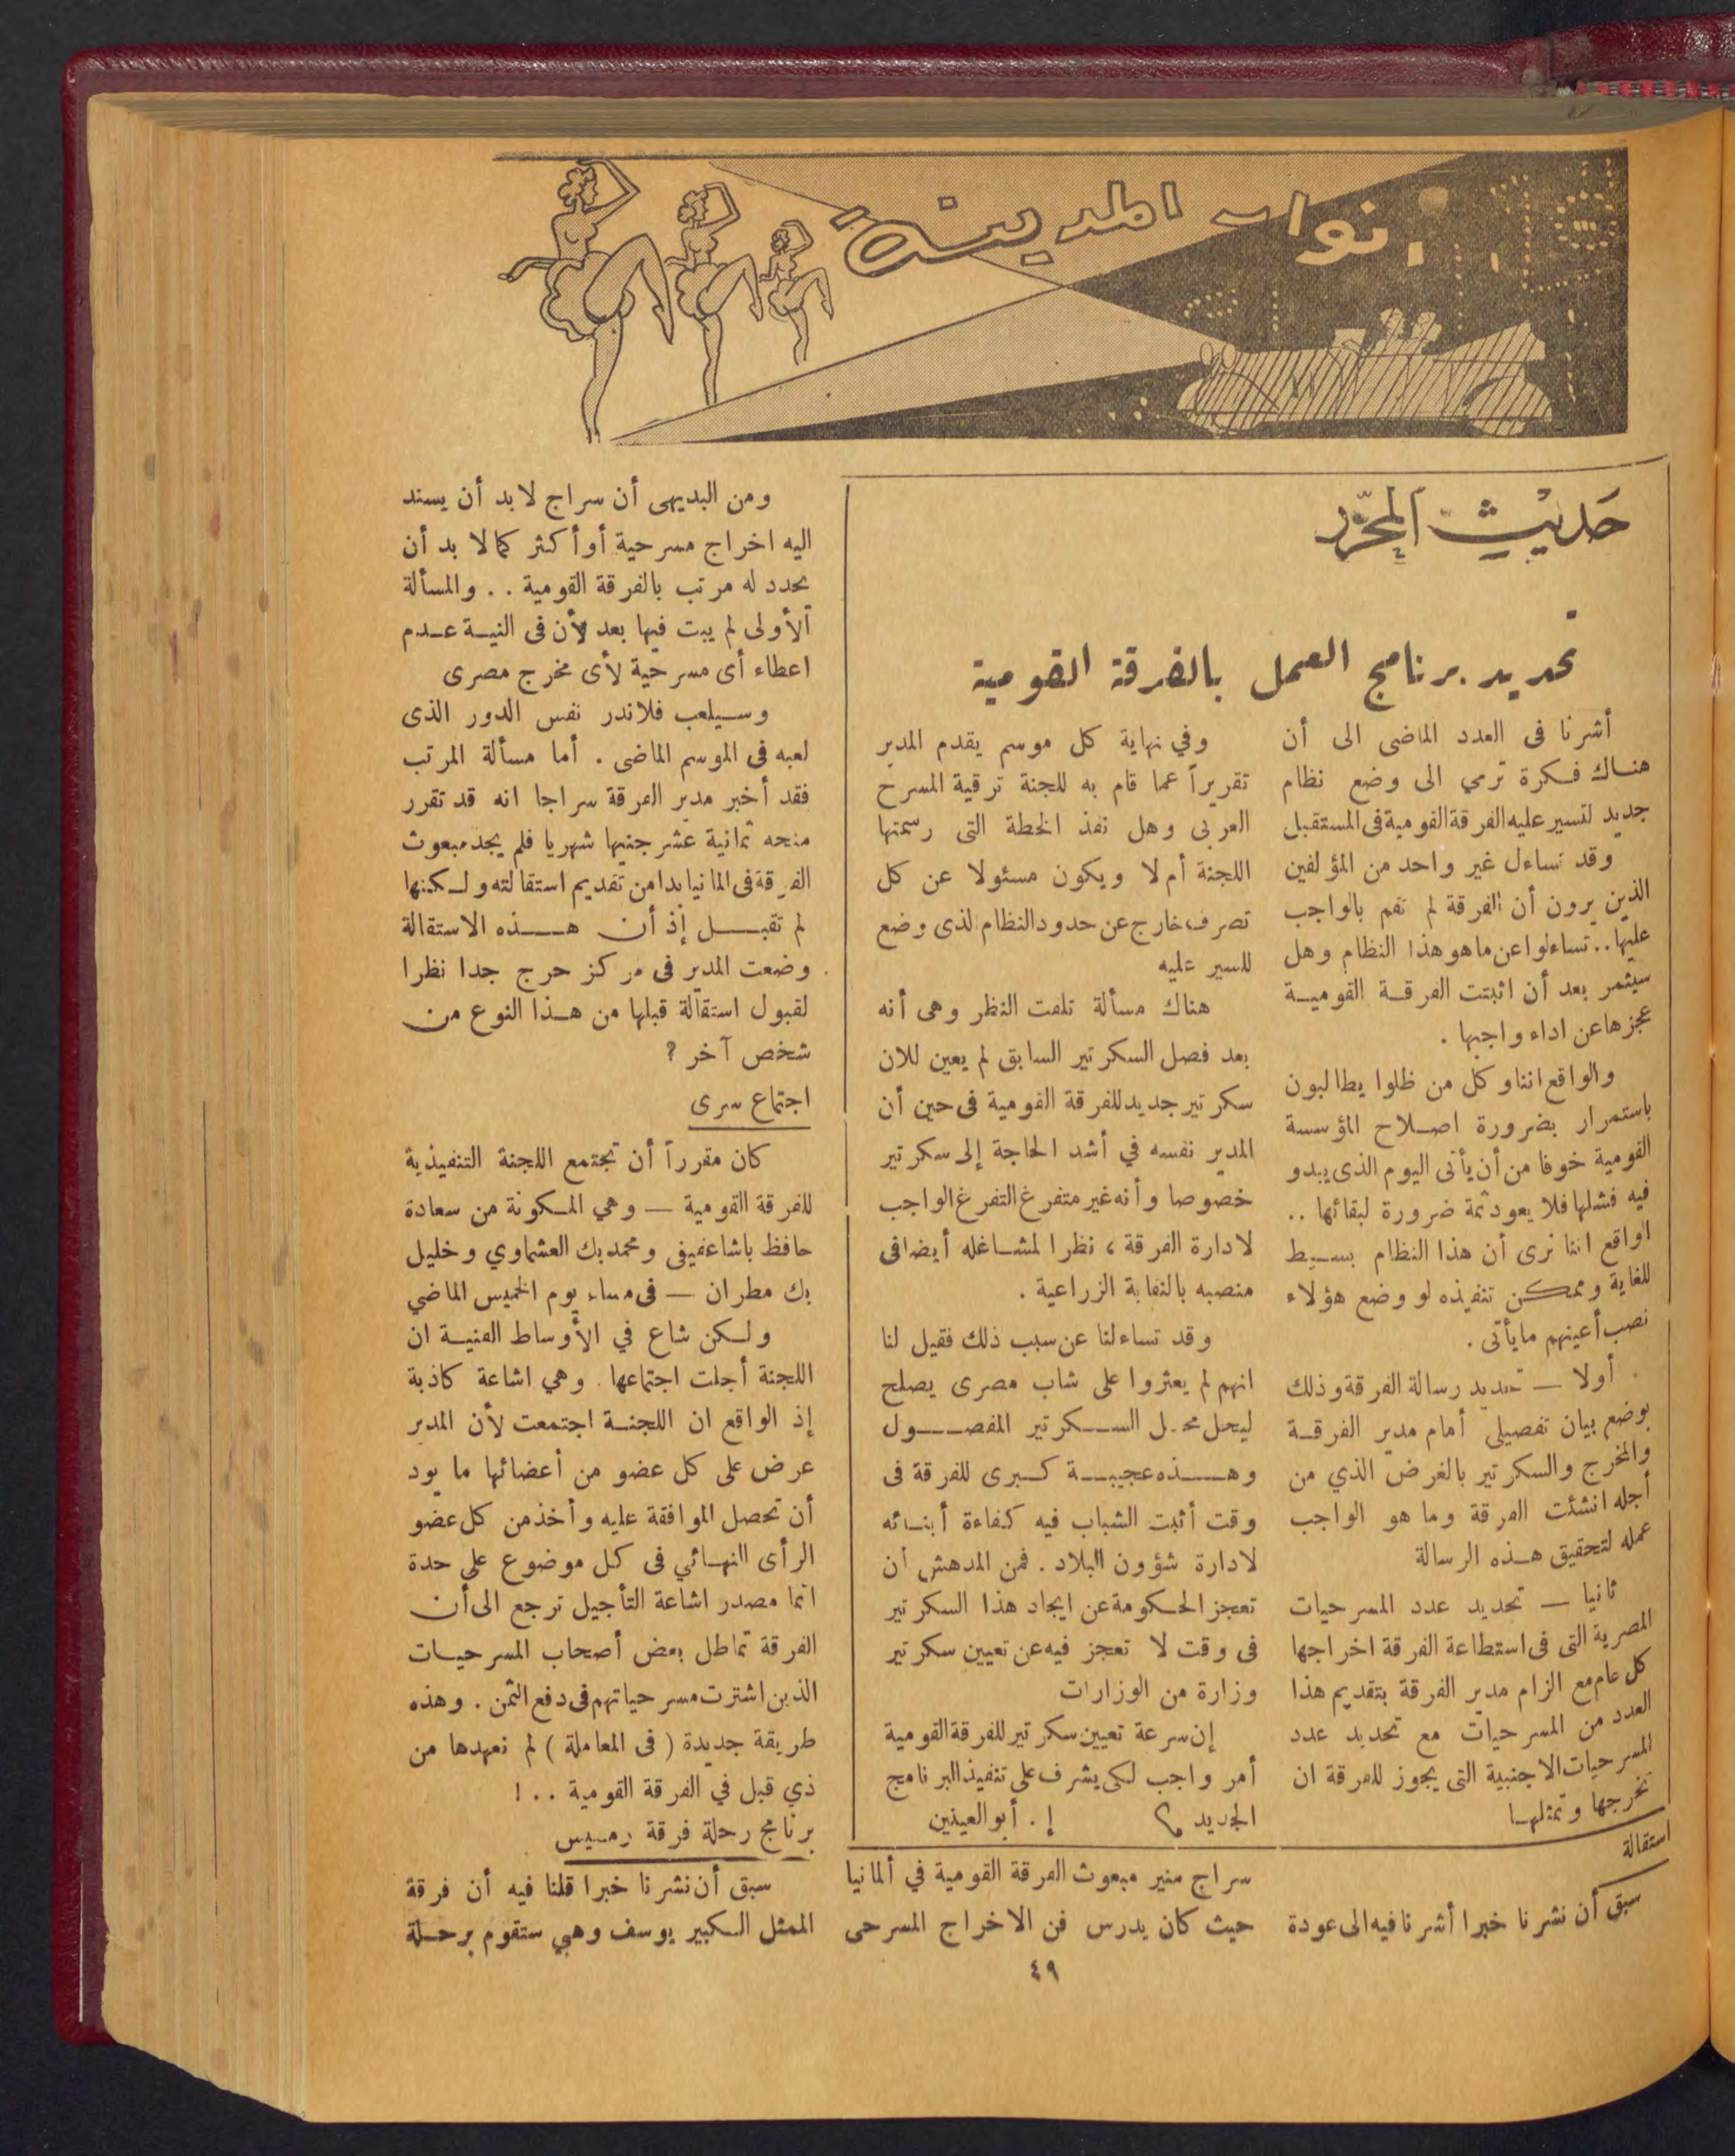 أنوار المدينة
حديث المحرر
تحديد برنامج العمل بالفرقة القومية
أشرنا فى العدد الماضى الى أن
هناك فكرة ترمي الى وضع نظام
جديد لتسير عليه الفرقة القومية فى المستقبل
وقد تساءل غير واحد من المؤلفين
الذين يرون أن الفرقة لم تقم بالواجب
عليها .. تساءلوا عن ما هو هذا النظام وهل
سيثمر بعد أن اثبتت الفرقة القومية
عجزها عن اداء واجبها .
والواقع اننا وكل من ظلوا يطالبون
باستمرار بضرورة اصلاح المؤسسة
القومية خوفا من أن يأتى اليوم الذى يبدو
فيه فشلها فلا يعود ثمة ضرورة لبقائها ..
اواقع اننا نرى أن هذا النظام بسيط
للغاية وممكن تنفيذه لو وضع هؤلاء
نصب أعينهم ما يأتى .
أولا — تحديد رسالة الفرقة وذلك
بوضع بيان تفصيلى أمام مدير الفرقة
والمخرج والسكرتير بالغرض الذي من
أجله انشئت الفرقة وما هو الواجب
عمله لتحقيق هذه الرسالة
ثانيا — تحديد عدد المسرحيات
المصرية التى فى استطاعة الفرقة اخراجها
كل عام مع الزام مدير الفرقة بتقديم هذا
العدد من المسرحيات مع تحديد عدد
المسرحيات الاجنبية التى يجوز للفرقة ان
تخرجها وتمثلها
وفي نهاية كل موسم يقدم المدير
تقريراً عما قام به للجنة ترقية المسرح
العربى وهل نفذ الخطة التى رسمتها
اللجنة أم لا ويكون مسئولا عن كل
تصرف خارج عن حدود النظام لذى وضع
للسير عليه
هناك مسألة تلفت النظر وهى أنه
بعد فصل السكرتير السابق لم يعين للان
سكرتير جديد للفرقة القومية فى حين أن
المدير نفسه في أشد الحاجة إلى سكرتير
خصوصا وأنه غير متفرغ التفرغ الواجب
لادارة الفرقة ، نظرا لمشاغله أيضا فى
منصبه بالنقابة الزراعية .
وقد تساءلنا عن سبب ذلك فقيل لنا
انهم لم يعثروا على شاب مصرى يصلح
ليحل محل السكرتير المفصول
وهذه عجيبة كبرى للفرقة فى
وقت أثبت الشباب فيه كفاءة أبنائه
لادارة شؤون البلاد . فمن المدهش أن
تعجز الحكومة عن ايجاد هذا السكرتير
فى وقت لا تعجز فيه عن تعيين سكرتير
وزارة من الوزارات
إن سرعة تعيين سكرتير للفرقة القومية
أمر واجب لكى يشرف على تنفيذ البرنامج
الجديد إ . أبو العينين
استقالة
سبق أن نشرنا خبرا أشرنا فيه الى عودة
سراج منير مبعوث الفرقة القومية في ألمانيا
حيث كان يدرس فن الاخراج المسرحى
ومن البديهى أن سراج لابد أن يسند
اليه اخراج مسرحية أو أكثر كما لا بد أن
يحدد له مرتب بالفرقة القومية . . والمسألة
الأولى لم يبت فيها بعد لأن فى النية عدم
اعطاء أى مسرحية لأى مخرج مصرى
وسيلعب فلاندر نفس الدور الذى
لعبه فى الموسم الماضى . أما مسألة المرتب
فقد أخبر مدير الفرقة سراجا انه قد تقرر
منحه ثمانية عشر جنيها شهريا فلم يجد مبعوث
الفرقة فى المانيا بدا من تقديم استقالته ولكنها
لم تقبل إذ أن هذه الاستقالة
وضعت المدير فى مركز حرج جدا نظرا
لقبول استقالة قبلها من هذا النوع من
شخص آخر ?
اجتماع سرى
كان مقرراً أن تجتمع اللجنة التنفيذية
للفرقة القومية — وهي المكونة من سعادة
حافظ باشا عفيفى ومحمد بك العشماوي وخليل
بك مطران — فى مساء يوم الخميس الماضي
ولكن شاع في الأوساط الفنية ان
اللجنة أجلت اجتماعها . وهي اشاعة كاذبة
إذ الواقع ان اللجنة اجتمعت لأن المدير
عرض على كل عضو من أعضائها ما يود
أن تحصل الموافقة عليه وأخذ من كل عضو
الرأى النهائي فى كل موضوع على حدة
انما مصدر اشاعة التأجيل ترجع الى أن
الفرقة تماطل بعض أصحاب المسرحيات
الذين اشترت مسرحياتهم فى دفع الثمن . وهذه
طريقة جديدة ( فى المعاملة ) لم نعهدها من
ذي قبل في الفرقة القومية . . !
برنامج رحلة فرقة رمسيس
سبق أن نشرنا خبرا قلنا فيه أن فرقة
الممثل الكبير يوسف وهبي ستقوم برحلة
٤٩